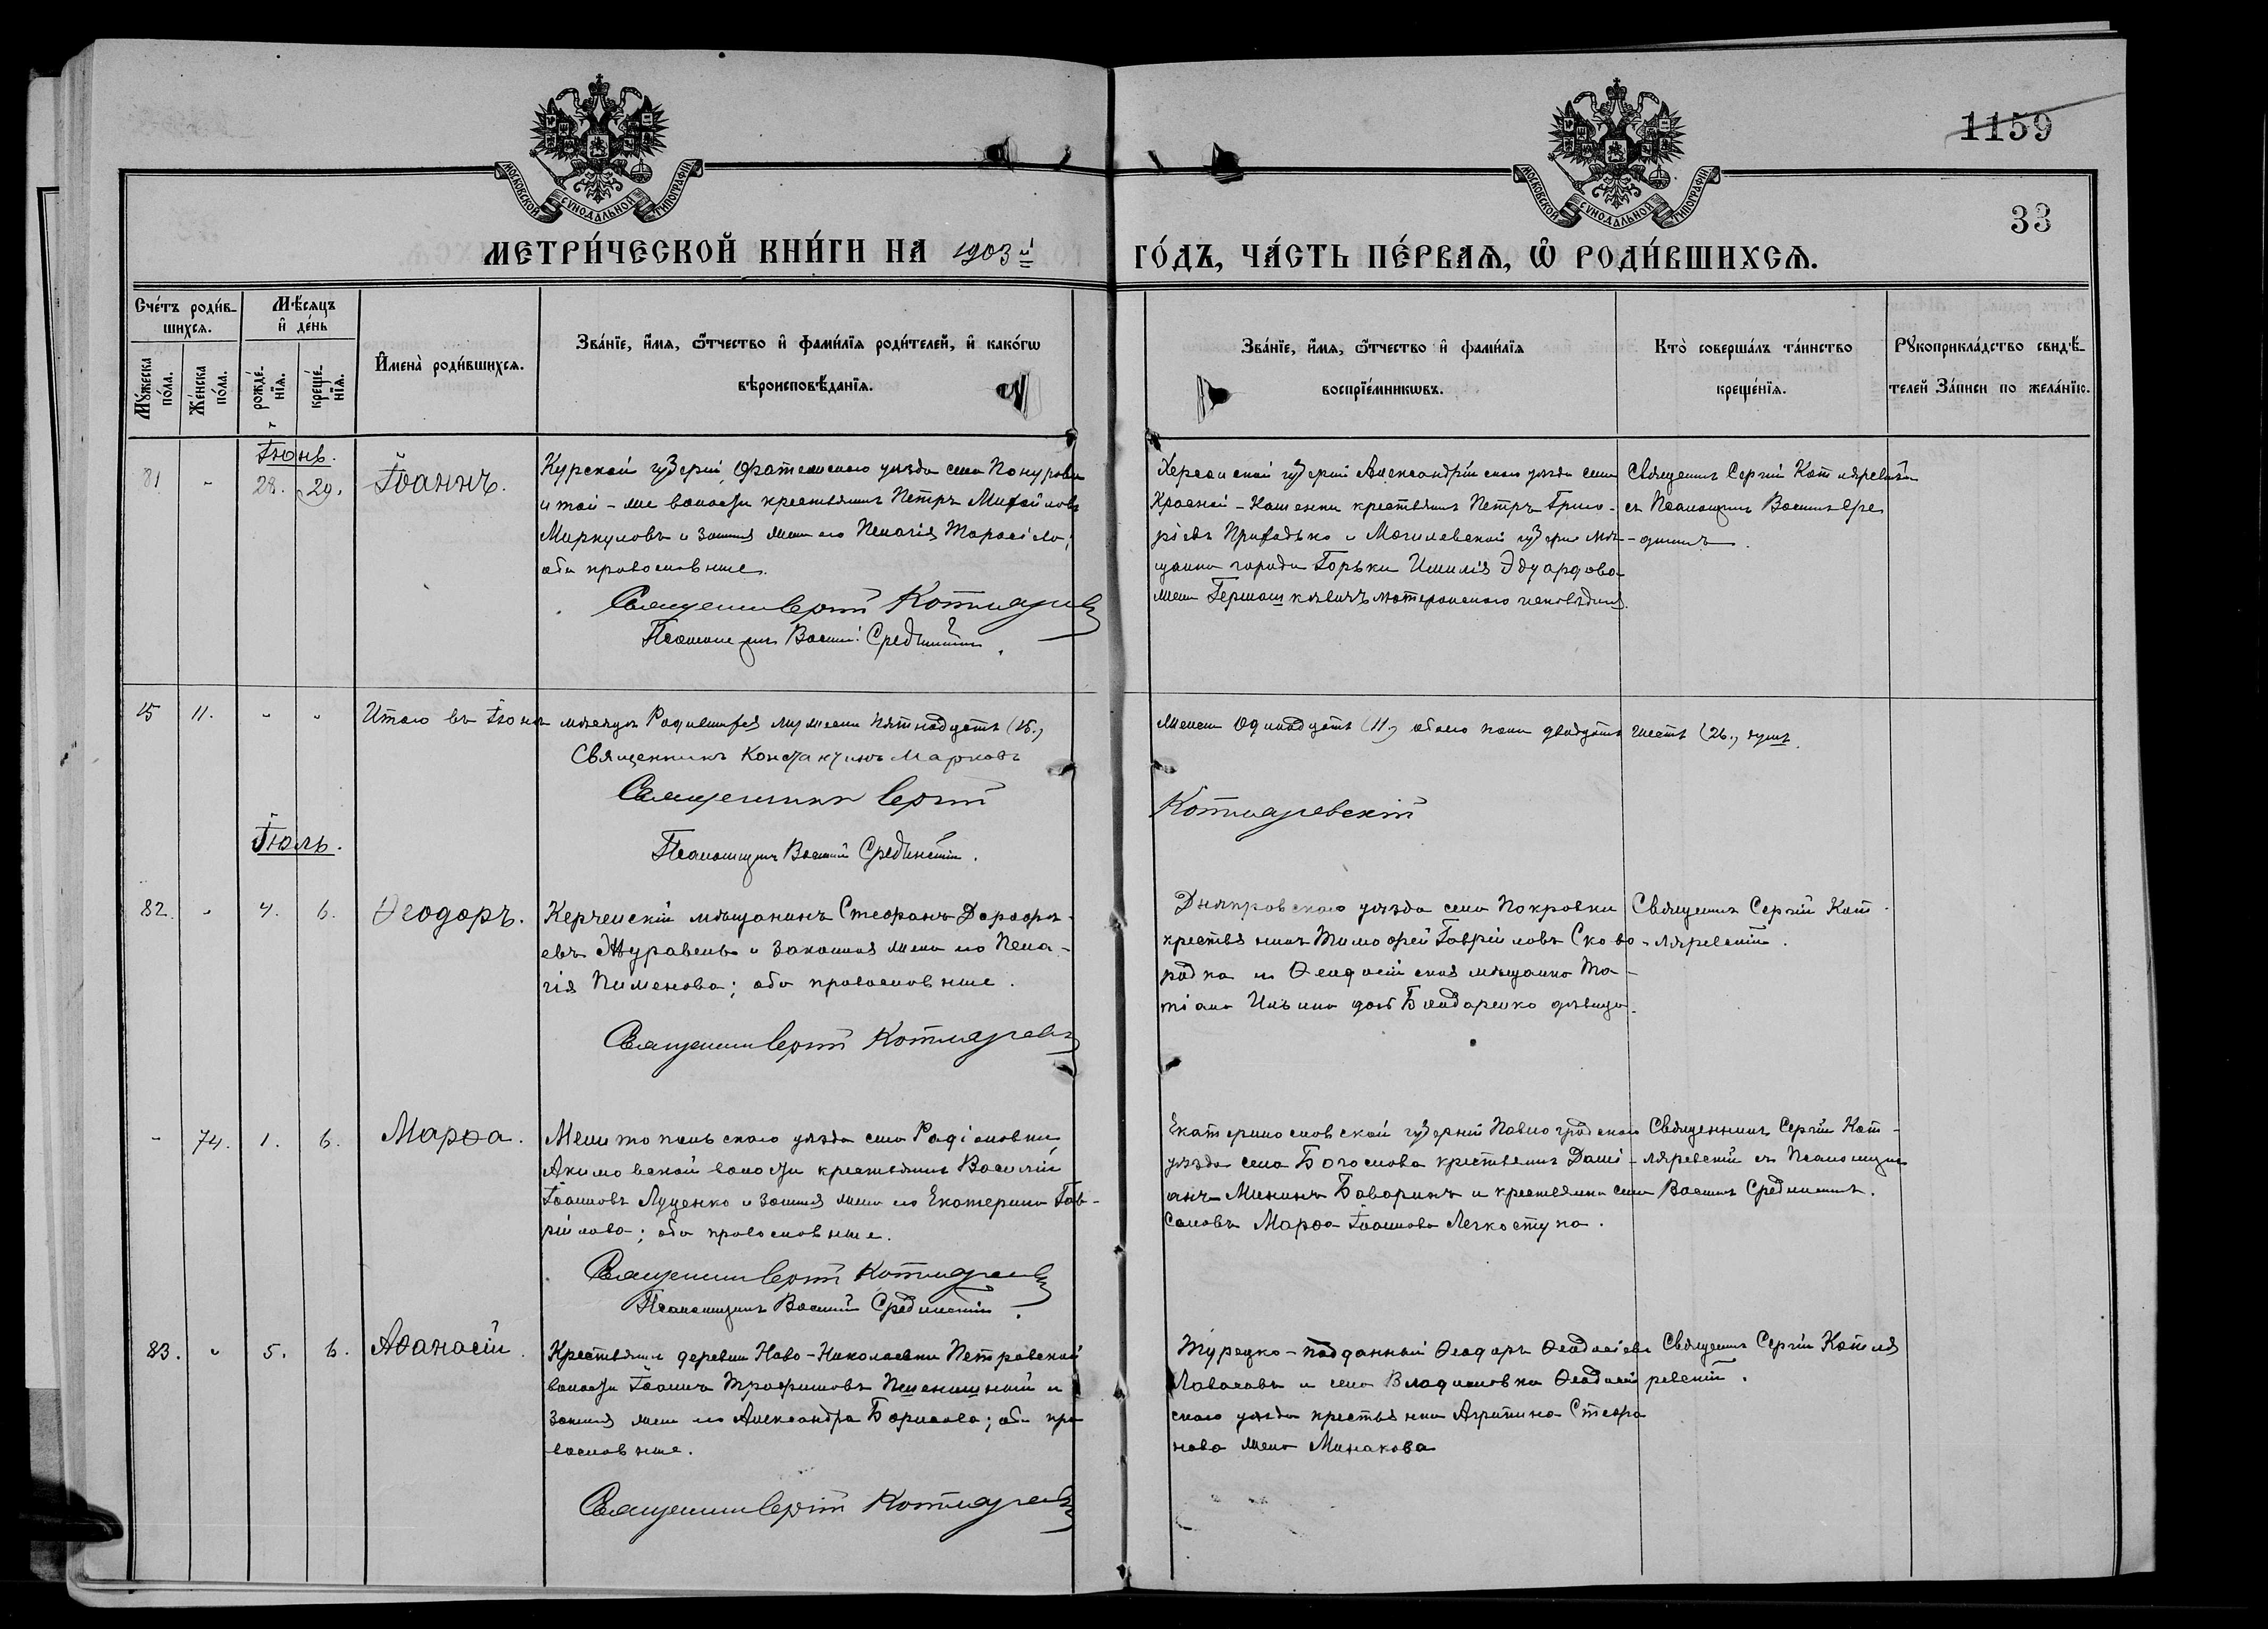 1159
33
МОСКОВСКОЙ СѴНОДАЛЬНОЙ ТИПОГРАФІИ
МОСКОВСКОЙ СѴНОДАЛЬНОЙ ТИПОГРАФІИ
МЕТРИ́ЧЕСКОЙ КНИ́ГИ НА 1903й ГО́ДЪ, ЧА́СТЬ ПЕ́РВАѦ, Ѡ РОДИ́ВШИХСѦ.
Сче́тъ роди́в-
шихсѧ.
Мѣ́сяцъ
и҆ де́нь
Мꙋ́жеска
по́ла.
Же́нска
по́ла.
рожде́-
нїѧ.
креще́-
нїѧ.
И҆мена̀ роди́вшихсѧ.
Зва́нїе, и҆́мѧ, ѻ҆́тчество и҆ фами́лїѧ роди́телей, и҆ како́гѡ
вѣроисповѣ́данїѧ.
Зва́нїе, и҆́мѧ, ѻ҆́тчество и҆ фами́лїѧ
воспрїе́мникѡвъ.
Кто̀ соверша́лъ та́инство
креще́нїѧ.
Рꙋкоприкла́дство свидѣ́-
телей За́писи по жела́нїю.
Іюнь.
81 " 28. 29. Іоаннъ.
Курской губерніи, Фатежскаго уѣзда села
и той-же волости крестьянинъ Петръ Михайловъ
Меркуловъ и законная жена его Пелагія Тарасіева;
оба православные.
Священникъ Сергій Котляревскій
Псаломщикъ Василій Срединскій.
Херсонской губерніи Александрійскаго уѣзда села
Красной-Каменки крестьянинъ Петръ Григо-
ріевъ Приходько и Могилевской губерніи мѣ-
щанка города Горьки Эдуардова
лютеранскаго исповѣданія.
Священникъ Сергій Котляревскій
съ Псаломщикомъ Василіемъ Сре-
динскимъ.
15 11. " " Итого въ Іюнѣ мѣсяцѣ Родившихся мужеска пятнадцать (15.)
женска одинадцать (11.) обоего пола двадцать шесть (26.) душъ.
Священникъ Константинъ Марковъ
Священникъ Сергій Котляревскій
Псаломщикъ Василій Срединскій.
Іюль.
82. " 4. 6. Ѳеодоръ.
Керченскій мѣщанинъ Стефанъ Дорофе-
евъ Журавель и законная жена его Пела-
гія Пименова; оба православные.
Священникъ Сергій Котляревскій
Днѣпровскаго уѣзда села Покровки
крестьянинъ Тимофей Гавріиловъ Сково-
родка и Ѳеодосійская мѣщанка Та-
тіана Ильина дочь Бондаренко дѣвица.
Священникъ Сергій Кот-
ляревскій.
" 74. 1. 6. Марѳа.
Мелитопольскаго уѣзда села Родіоновки
Акимовской волости крестьянинъ Василій
Іоанновъ Луценко и законная жена его Екатерина Гав-
ріилова; оба православные.
Священникъ Сергій Котляревскій
Псаломщикъ Василій Срединскій.
Екатеринославской губерніи Павлоградскаго
уѣзда села Богослова крестьянинъ Дамі-
анъ Мининъ Баваринъ и крестьянка села
Марѳа Іоаннова Легкоступа.
Священникъ Сергій Кот-
ляревскій съ Псаломщикомъ
Василіемъ Срединскимъ.
83. " 5. 6. Аѳанасій.
Крестьянинъ деревни Ново-Николаевки Петровской
волости Іоаннъ Трофимовъ Пшеничный и
законная жена его Александра Борисова; оба пра
вославные.
Священникъ Сергій Котляревскій
Турецко-подданный Ѳеодоръ Ѳеодосіевъ
и села Владиславовки Ѳеодосій
скаго уѣзда крестьянка Агрипина Стефа
нова жена Минакова
Священникъ Сергій Котля
ревскій.